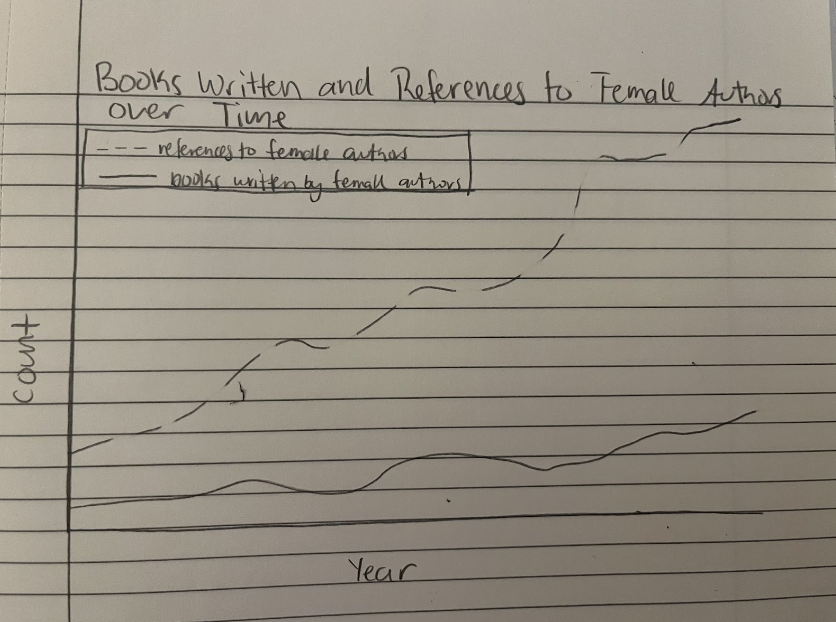 Books Written and References to Female Authors
over Time
--- references to female authors
—— books written by female authors
Count
Year